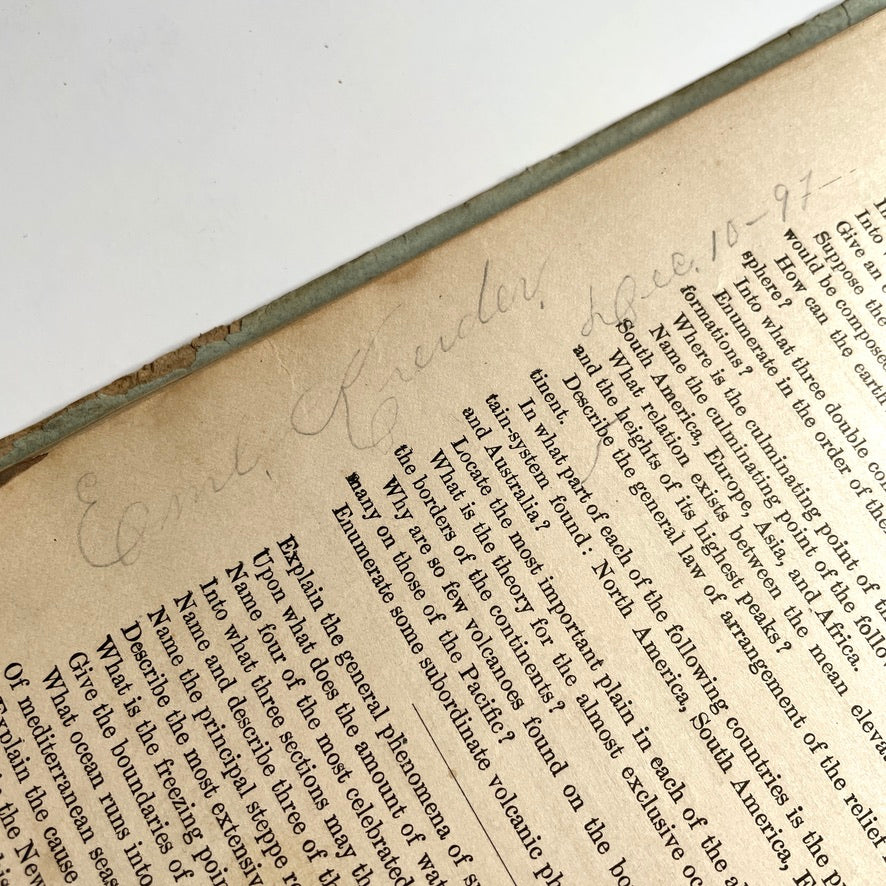 Dec. 10-97-
Into
Give an
Suppose the
would be composed
How can the earth
sphere?
Into what three double
Enumerate in the order of
formations?
Where is the culminating point of
Name the culminating point of the follo
South America, Europe, Asia, and Africa.
What relation exists between the mean eleva
and the heights of its highest peaks?
Describe the general law of arrangement of the relief
tinent.
In what part of each of the following countries is the p
tain-system found: North America, South America,
and Australia?
Locate the most important plain in each of the
What is the theory for the almost exclusive oc
the borders of the continents?
Why are so few volcanoes found on the bo
many on those of the Pacific?
Enumerate some subordinate volcanic ph
Explain the general phenomena of s
Upon what does the amount of wat
Name four of the most celebrated
Into what three sections may th
Name and describe three of th
Name the principal steppe r
Describe the most extensiv
What is the freezing poin
Give the boundaries of
What ocean runs into
Of mediterranean seas
Explain the cause
the New